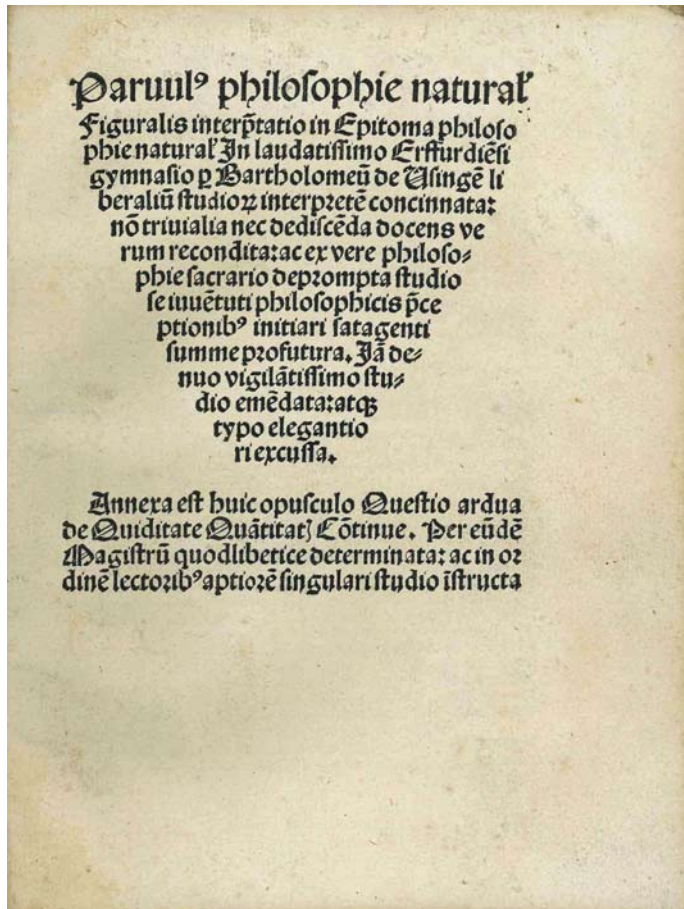 Paruulꝰ philosophie natural̕
Figuralis interp̃tatio in Epitoma philoso
phie natural̕ In laudatissimo Erffurdiẽsi
gymnasio ꝑ Bartholomeũ de Usingẽ li
beraliũ studioꝝ interpretẽ concinnata:
nõ triuialia nec dediscẽda docens ve
rum recondita: ac ex vere philoso⸗
phie sacrario deprompta studio
se iuuẽtuti philosophicis p̃ce
ptionibꝰ initiari satagenti
summe profutura. Jã de⸗
nuo vigilãtissimo stu⸗
dio emẽdata: atqꝫ
typo elegantio
ri excussa.
Annexa est huic opusculo Questio ardua
de Quiditate Quãtitatꝭ Cõtinue. Per eũdẽ
Magistrũ quodlibetice determinata: ac in or
dinẽ lectoribꝰ aptiorẽ singulari studio ĩstructa